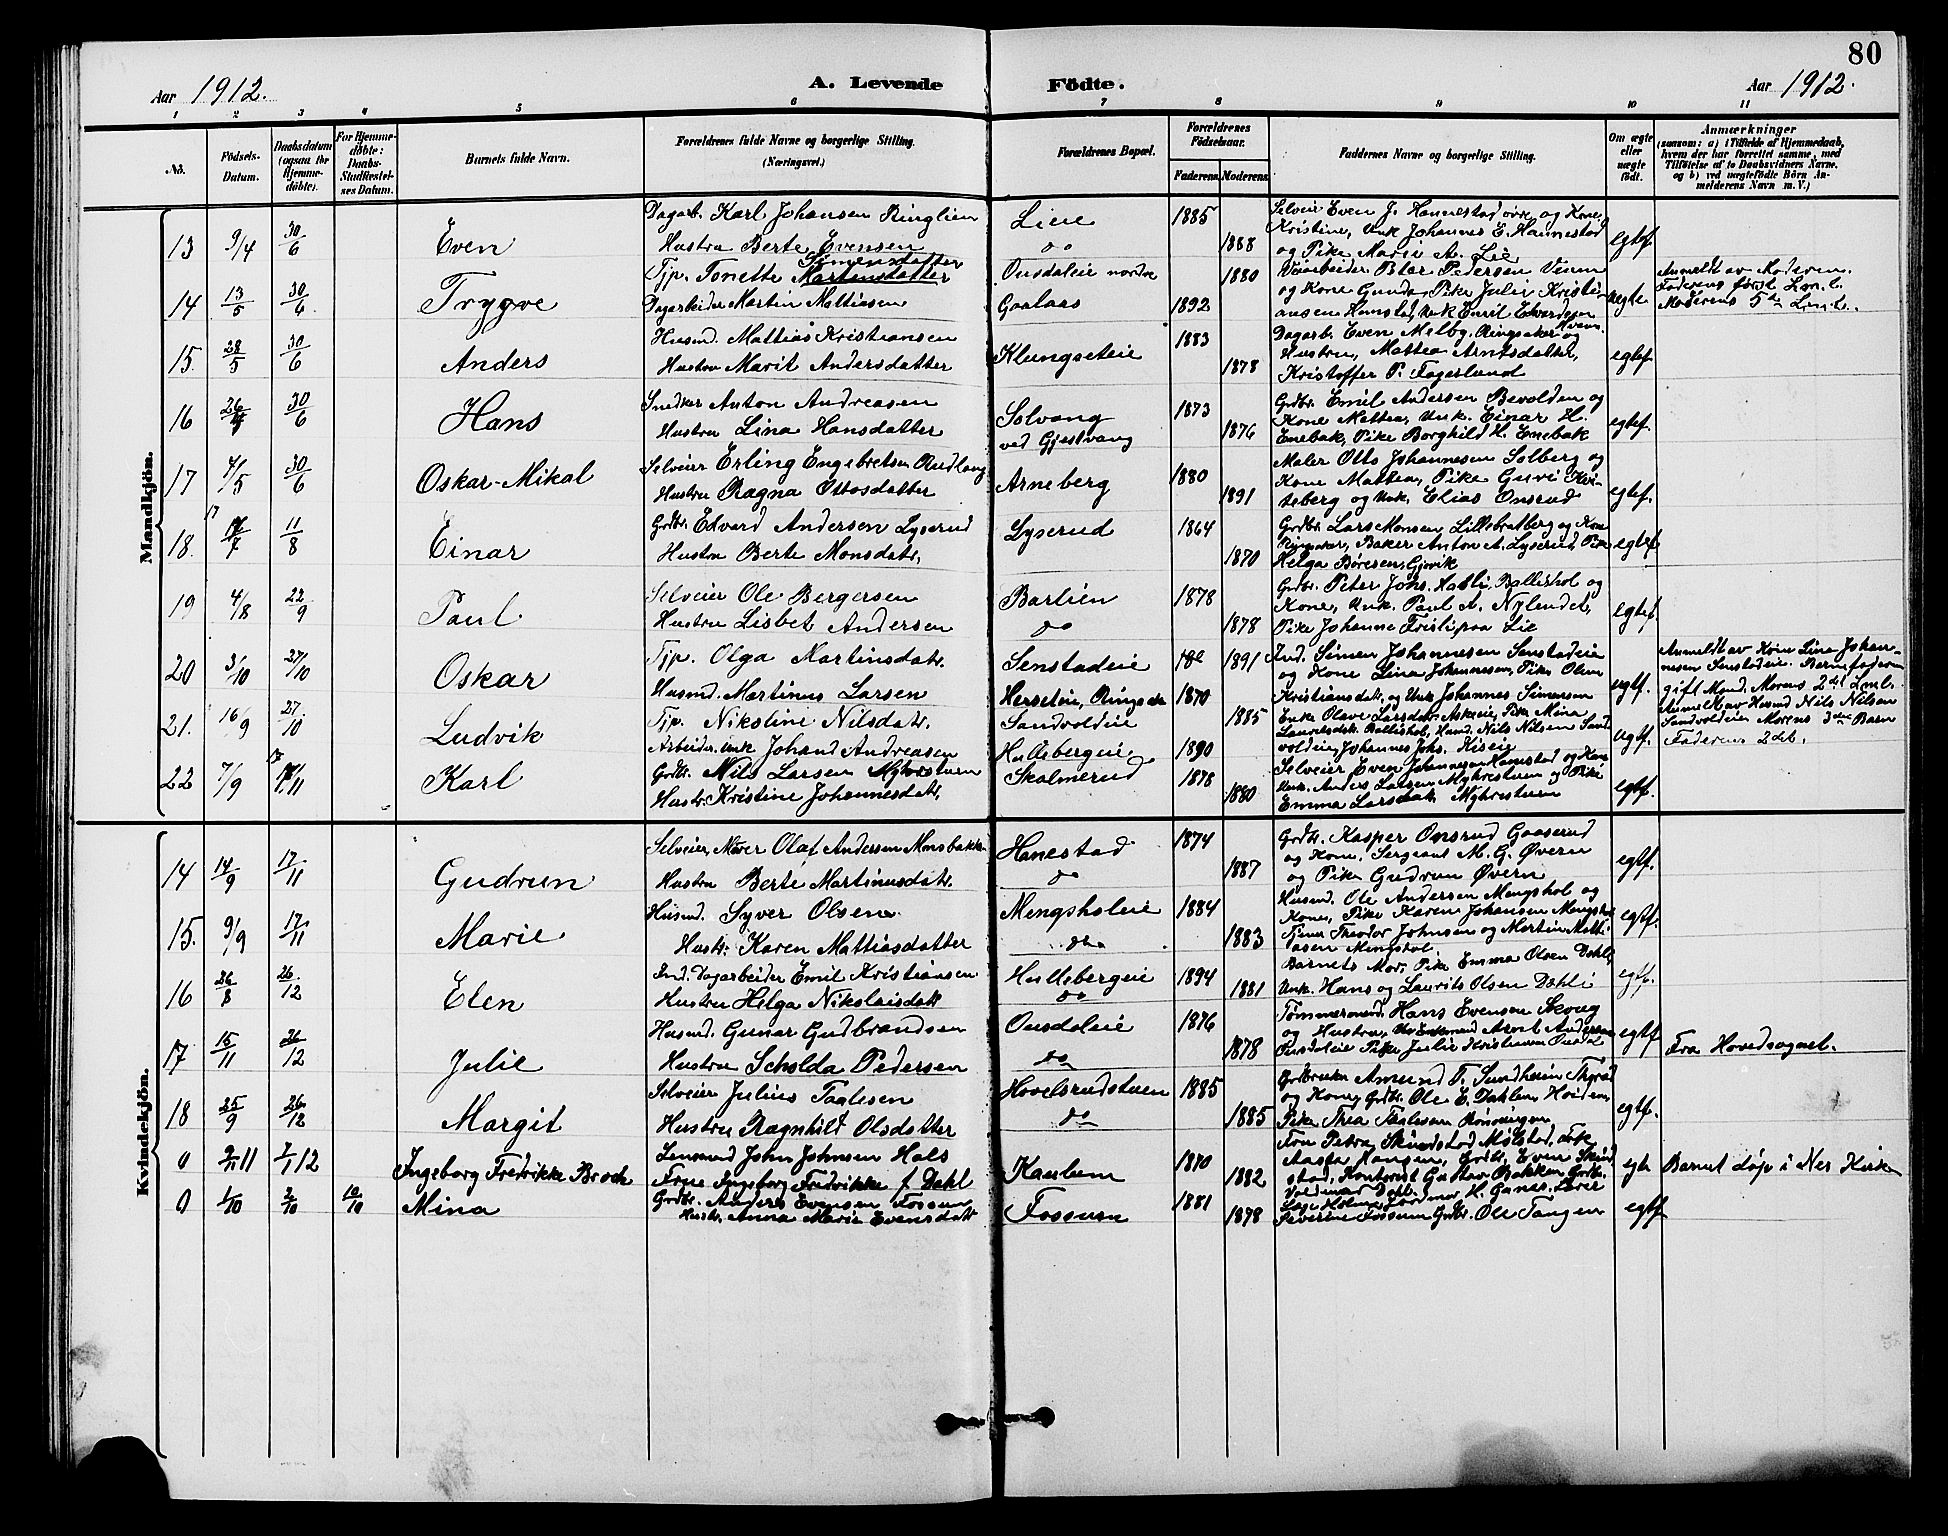 80
Aar 1912.
A. Levende Födte.
Aar 1912.
1 2 3 4 5 6 7 8 9 10 11
No.
Födsels-Datum.
Daabsdatum (ogsaa for Hjemme-döbte).
For Hjemme-döbte: Daabs-Stadfæstel-ses Datum.
Barnets fulde Navn.
Forældrenes fulde Navne og borgerlige Stilling. (Næringsvei.)
Forældrenes Bopæl.
Forældrenes Födselsaar.
Faderens. Moderens.
Faddernes Navne og borgerlige Stilling.
Om ægte eller uægte födt.
Anmærkninger
(saasom: a) i Tilfælde af Hjemmedaab, hvem der har forrettet samme, med Tilföielse af to Daabsvidners Navne, og b) ved uægtefödte Börn An-melderens Navn m. V.)
Mandkjön.
13 9/4 30/6 Even
Dagarb. Karl Johansen Ringlien
Hustru Berte Evensen
Liee do 1885 1888
Selveier Even J. Hannestad øvre og Kone
Kristine, Unk Johannes E. Hannestad
og Pike Marie A. Lie
egtef.
14 13/5 30/6 Trygve
Tjp. Tonette Simensdatter Martinsdatter
Dagarbeider Martin Mattiasen
Onsdaleie nordre 1880
Gaalaas 1892
Veiarbeider Peter Pedersen Veum
og Kone Gunda, Pike Julie Kristi-
ansen Hanstad, Unk Emil Edvardsen
uegte
Anmeldt av Moderen.
Faderens først L.m.l.
Moderens 5te L.m.l.
15. 28/5 30/6 Anders
Husmd. Mattias Kristiansen
Hustru Marit Andersdatter
Klungseteie 1883 1878
Dagarb. Even Melby, Ringsaker og
Hustru, Mattea Arntsdatter,
Kristoffer P. Fagerlund
egtef.
16 26/4 30/6 Hans
Snedker Anton Andreasen
Hustru Lina Hansdatter
Solvang
ved Gjestvang
1873 1876
Grdbr. Emil Andersen Bevolden og
Kone Mattea, Unk. Einar H.
Enebak, Pike Borghild H. Enebak
egtef.
17 7/5 30/6 Oskar-Mikal
Selveier Erling Engebretsen Rudlang
Hustru Ragna Ottosdatter
Arneberg 1880 1891
Maler Otto Johannesen Solberg og
Kone Mattea, Pike Guvi Kvi-
seberg og Unk. Elias Onsrud
egtef.
18. 17/7 11/8 Einar
Grdbr. Edvard Andersen Lyserud
Hustru Berte Monsdatr.
Lyserud 1864 1870
Grdbr. Lars Monsen Lillebratberg og Kone
Ringsaker, Baker Anton A. Lyserud, Pike
Helga Børesen, Gjøvik
egtef
19 4/8 22/9 Paul
Selveier Ole Bergersen
Hustru Lisbet Andersen
Bartien do 1878 1878
Grdbr. Peter Johs. Aasli, Ballishol og
Kone, Unk. Paul A. Nylendet,
Pike Johanne Frislipaa Lie
egtef.
20 3/10 27/10 Oskar
Tjp. Olga Martinsdatr.
Husmd. Martinus Larsen
Senstadeie 1891
Herseteie, Ringsaker 1870
Ind. Simen Johannesen Senstadeie
og Kone Lina Johannesen, Pike Oline
Kristiansdatr. og Unk Johannes Simensen
uegtf.
Anmeldt av Kone Lina Johan-
nesen Senstadeie. Barnefaderen
gift Mand. Morens 2det L.m.l.
21. 16/9 27/10 Ludvik
Tjp. Nikoline Nilsdatr.
Arbeider, Unk Johand Andreasen
Sandvoldeie 1885
Hullebergeie 1890
Enke Olave Larsdatr. Askeeie, Pike Mina
Lauritsdatr. Ballishol, Husmd. Nils Nilsen Sand
voldeie, Johannes Johs. Kiseie
Uegtf.
Anmelt av Husmd Nils Nilsen
Sandvoldeie Morens 3die Barn
Faderens 2det.
22 7/9 17/11 Karl
Grdbr. Nils Larsen Myhrestuen
Hustr. Kristine Johannesdatr.
Skolmerud 1878 1880
Selveier Even Johannesen Hannestad og Kone
Unk. Anders Larsen Myhrestuen og Pike
Emma Larsdatr. Myhrestuen
egtf.
Kvindekjön.
14 14/9 17/11 Gudrun
Selveier, Murer Olaf Andersen Monsbakke
Hustru Berte Martinusdatr.
Hanestad do 1874 1887
Grdbr. Kasper Onsrud Gaaserud
og Kone, Sergeant M. G. Øvern
og Pike Gudrun Øvern
egtf.
15. 9/9 17/11 Marie
Husmd. Syver Olsen
Hustr. Karen Mattiasdatter
Mengsholeie do 1884 1883
Husmd. Ole Andersen Mengshol og
Kone, Pike Karen Johansen Mengshol
Tjener Theodor Johnsen og Martin Matti-
asen Mengshol.
egtf.
16 26/8 26/12 Elen
Ind. Dagarbeider Emil Kristiansen
Hustru Helga Nikolaisdatr
Hullebergeie do 1894 1881
Barnets Mor, Pike Emma Olsen Dahli,
Unk. Hans og Laurits Olsen Dahli
egtf.
17 15/11 26/12 Julie
Husmd. Gunar Gudbrandsen
Hustru Scholda Pedersen
Onsdaleie do 1876 1878
Tømmermand Hans Evensen Skoug
og Hustru, Enkemand Arnt Andersen
Onsdaleie Pike Julie Kristiansen Onsdal
egtf
Fra Hovedsognet.
18 25/9 26/12 Margit
Selveier Julius Taalesen
Hustru Ragnhild Olsdatter
Hovelsrudstuen do 1885 1885
Grdbruker Amund T. Sundheim Thyrud
og Kone, Grdbr. Ole E. Dahlen, Hvidem
Pike Thea Taalesen
egtf.
0 2/11 11 7/1 12 Ingeborg Fredrikke Broch
Lensmand John Johnsen Hals
Frue Ingeborg Fredrikke f. Dahl
Kaulum 1870 1882
Fru Petra Skundstad Mølstad, Frk
Aasta Hansen, Grdbr. Even Skund
stad, Kontorist Gustav Bakken Grdbr.
Valdmar Dahl.
egte
Barnet døpt i Nes Kirke
0 1/10 2/10 10/10 Mina
Grdbr. Anders Evensen Fossum
Hustr. Anna Marie Evensdatr
Fossum 1881 1878
Severine Fossum Grdbr. Ole Tangen
egtf